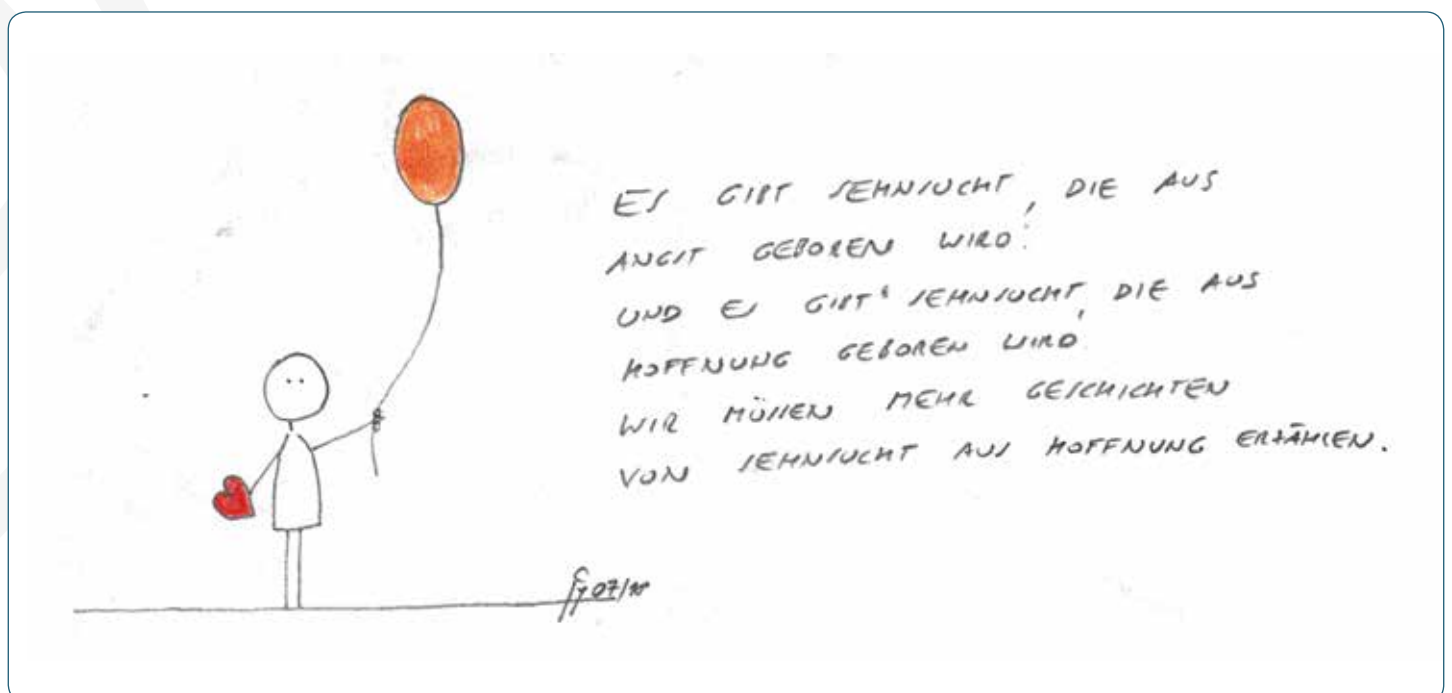 ES GIBT SEHNSUCHT, DIE AUS
ANGST GEBOREN WIRD.
UND ES GIBT SEHNSUCHT, DIE AUS
HOFFNUNG GEBOREN WIRD.
WIR MÜSSEN MEHR GESCHICHTEN
VON SEHNSUCHT AUS HOFFNUNG ERZÄHLEN.
07/